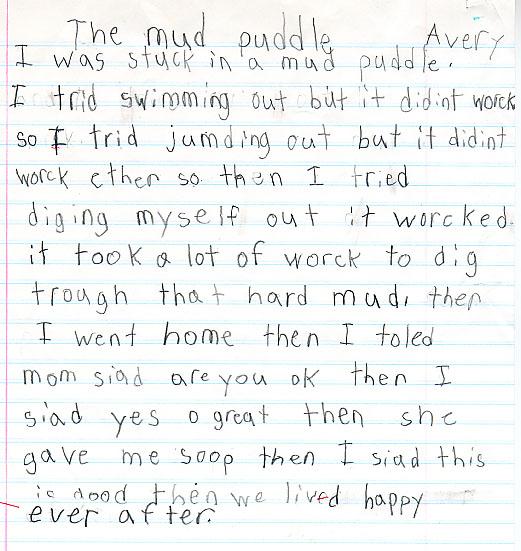 The mud puddle Avery
I was stuck in a mud puddle.
I trid swimming out but it didint worck
so I trid jumding out but it didint
worck ether so then I tried
diging myself out it worcked.
it took a lot of worck to dig
trough that hard mud. then
I went home then I toled
mom siad are you ok then I
siad yes o great then she
gave me soop then I siad this
is good then we lived happy
ever after.